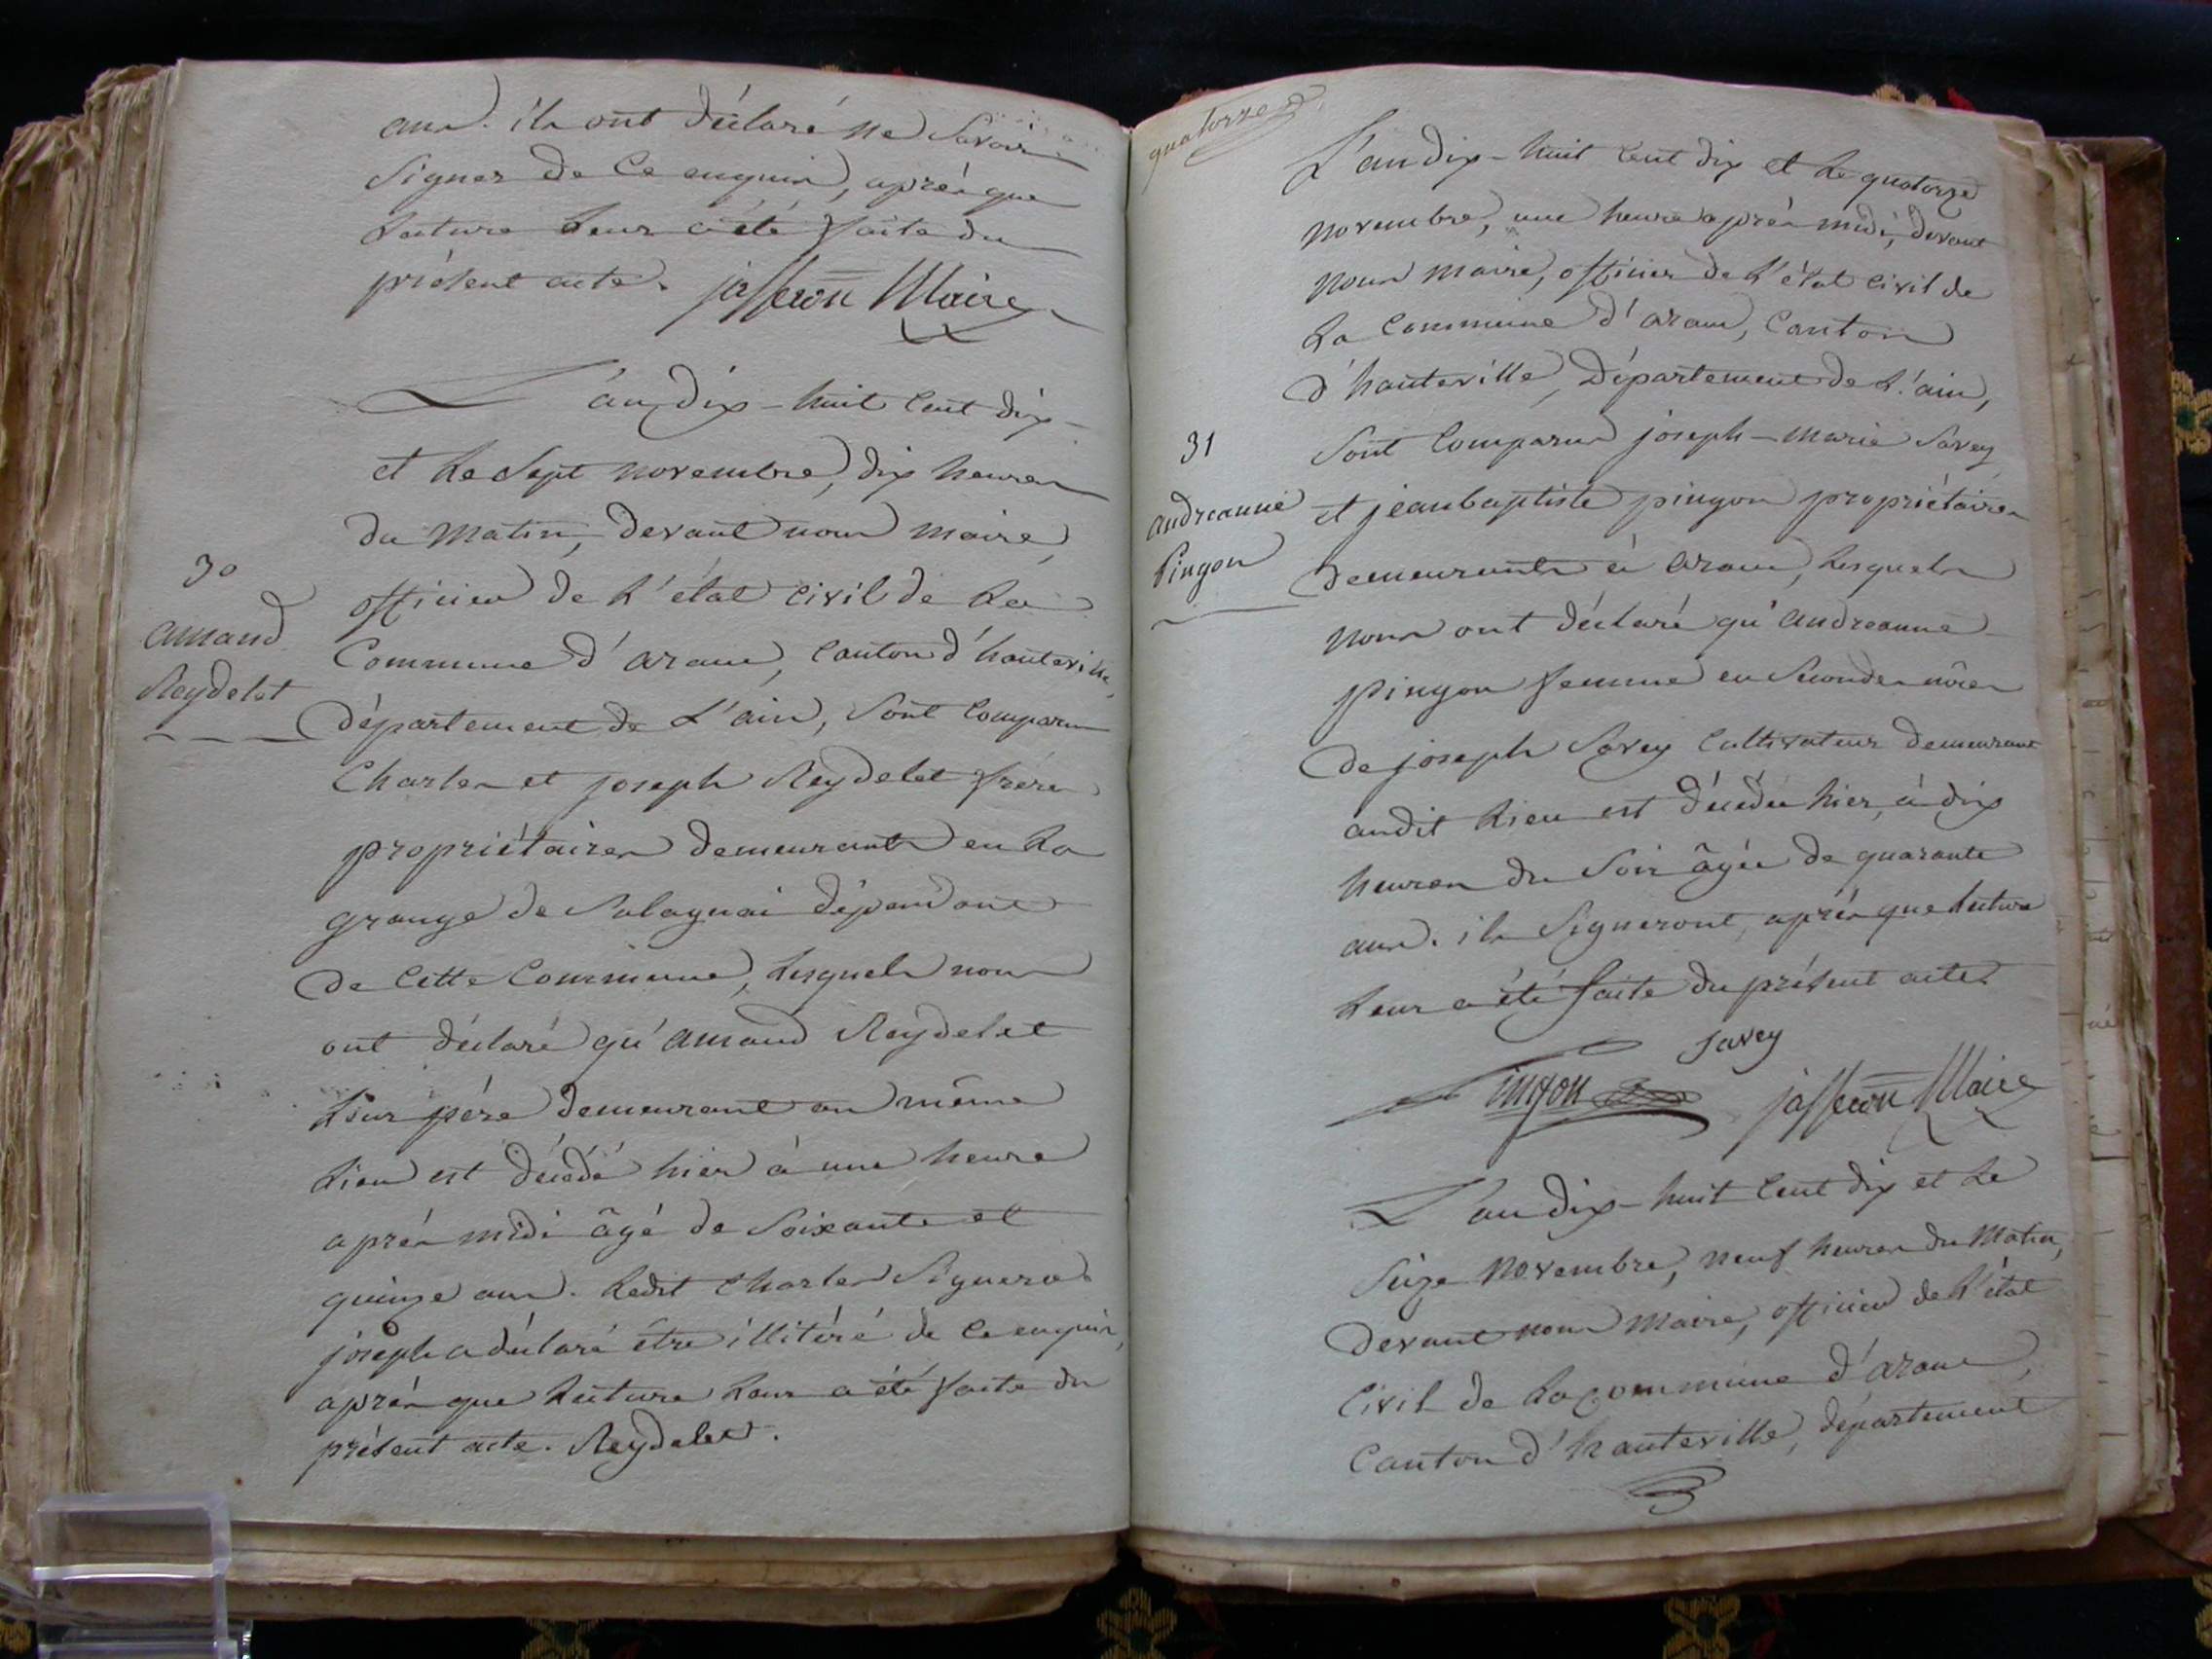 ans. ils ont déclaré ne Savoir
Signer de ce enquis, après que
Lecture Leur a été faite du
présent acte. jasseron Maire
L'an dix-huit Cent dix
et Le Sept novembre, dix heures
du Matin, devant nous maire,
officier de L'état civil de La
Commune d'arane, Canton d'hauteville,
département de L'ain, Sont Comparus
30
amand
Reydelet
Charles et joseph Reydelet frères
propriétaires demeurants en La
grange de dépendant
de Cette Commune, Lesquels nous
ont déclaré qu'amand Reydelet
Leur père demeurant au même
Lieu est décédé hier à une heure
après midi âgé de Soixante et
quinze ans. Ledit Charles Signera
joseph a déclaré être illitéré de ce enquis,
après que Lecture Leur a été faite du
présent acte. Reydelet.
quatorze
L'an dix-huit Cent dix et Le quatorze
novembre, une heure après midi, devant
nous maire, officier de L'état civil de
La Commune d'arane, Canton
d'hauteville, Département de L'ain,
31
andreanne
Pingon
Sont Comparus joseph-marie Savey
et jeanbaptiste pingon propriétaires
demeurants à arane, Lesquels
nous ont déclaré qu'andreanne
pingon femme en Secondes nôces
de joseph Savey Cultivateur demeurant
audit Lieu est décédée hier, à dix
heures du Soir âgée de quarante
ans. ils Signeront, après que Lecture
Leur a été faite du présent acte.
Savey
Pingon jasseron Maire
L'an dix-huit Cent dix et Le
Seize Novembre, neuf heures du Matin,
devant nous Maire, officier de L'état
Civil de La commune d'arane,
Canton d'hauteville, département